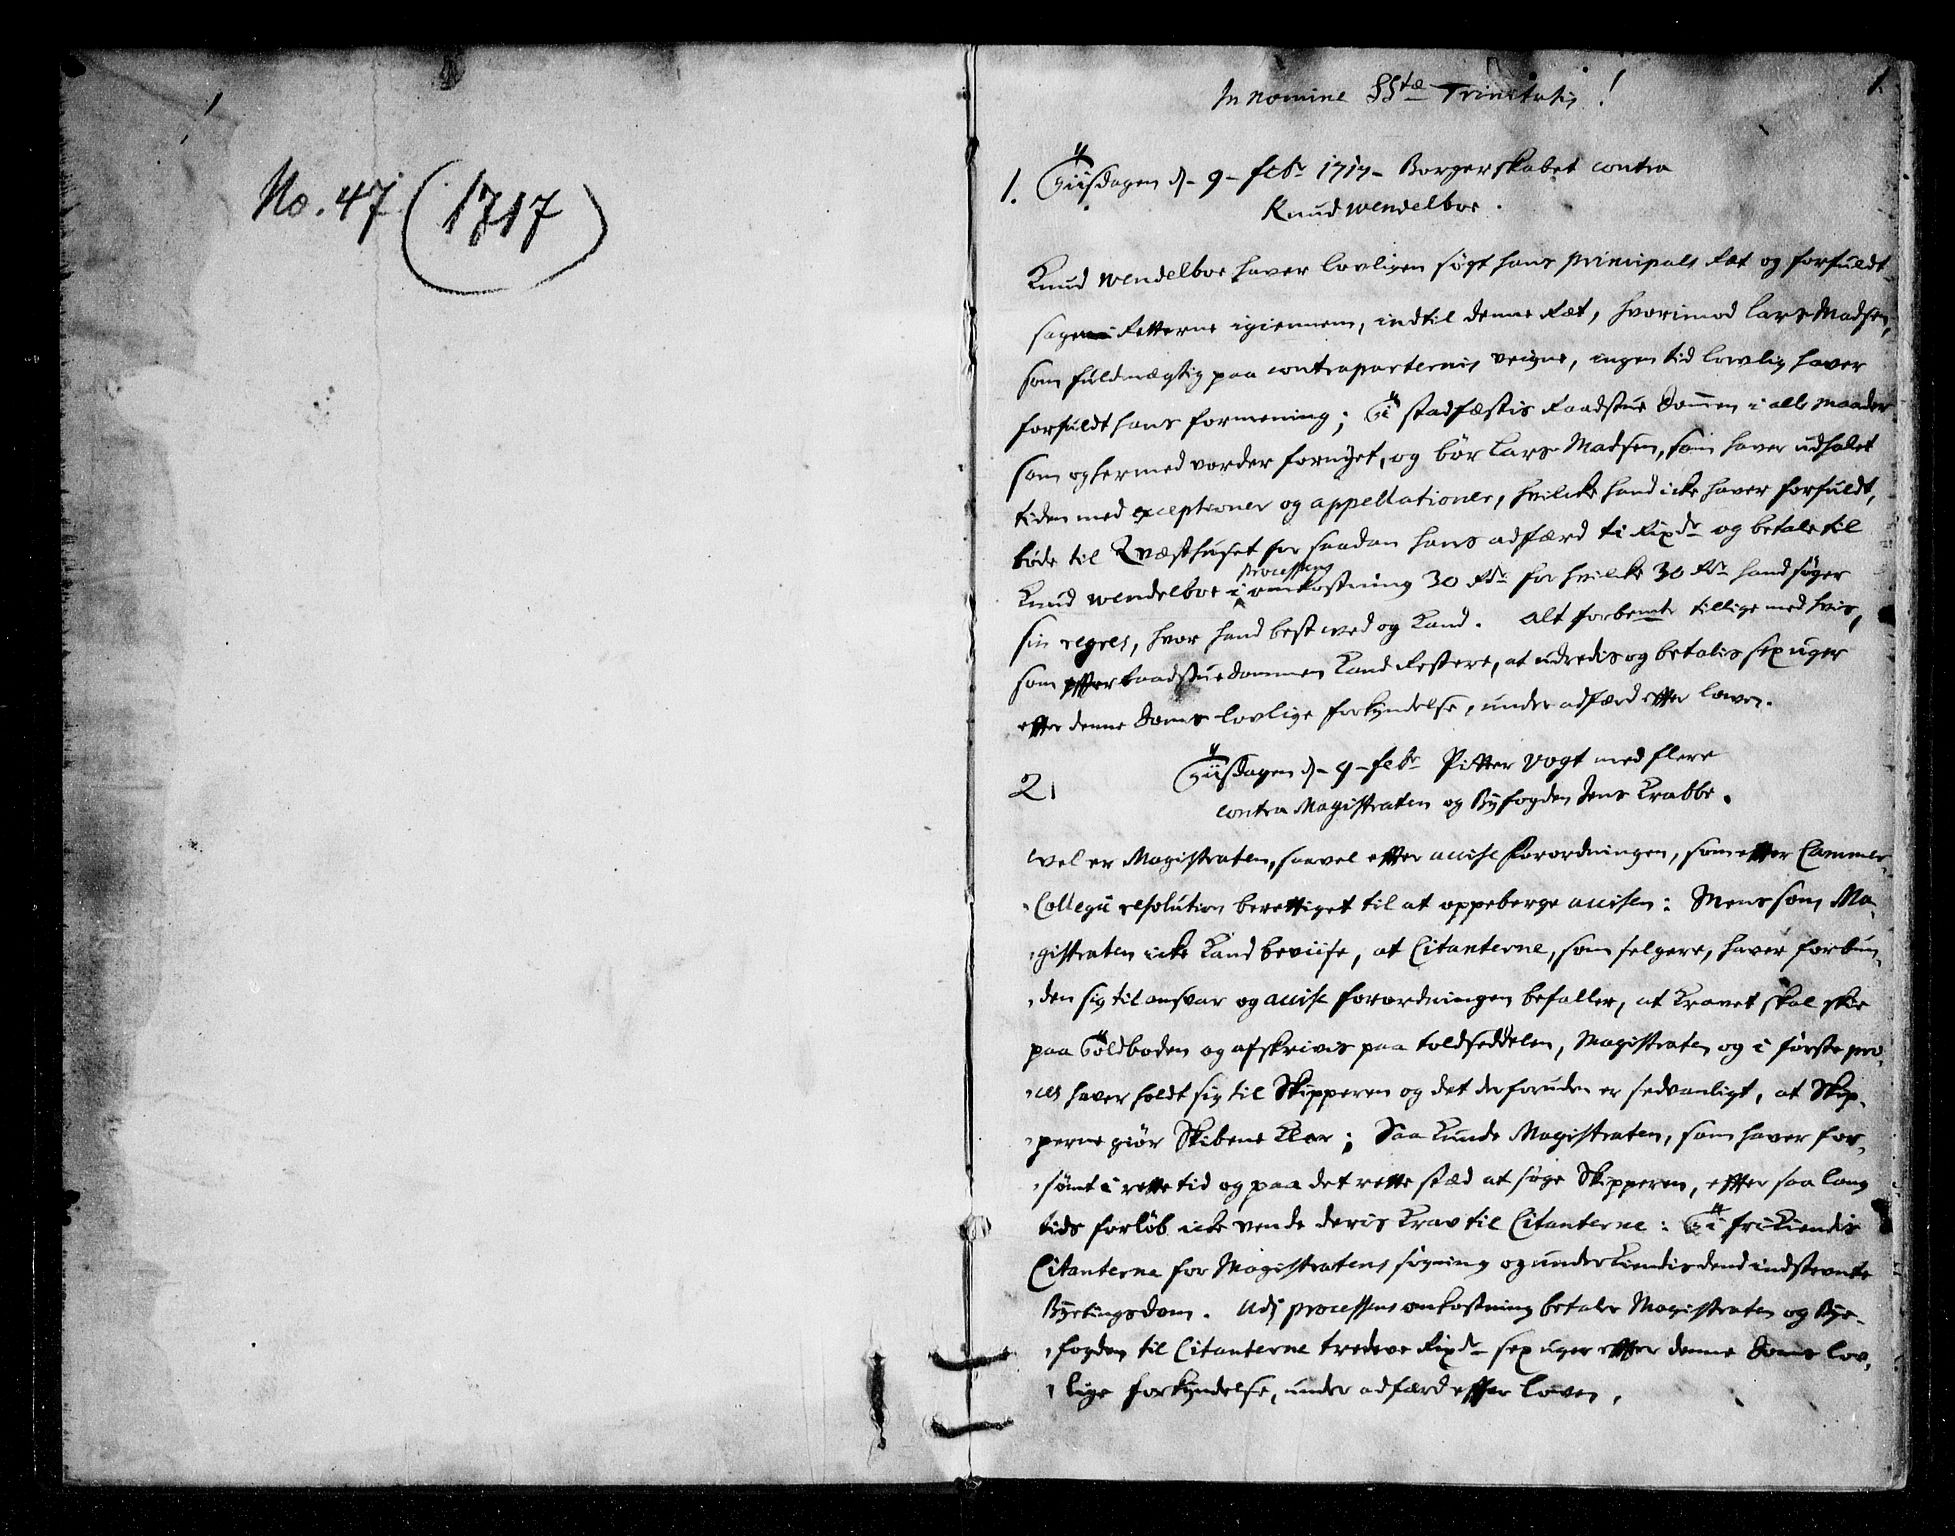 No. 47. (1717)
In Nomine SStæ Trinitatis!
1.
1. Tiisdagen d. 9 febr 1717 Borgerskabet contra
Knud Wendelboe.
Knud Wendelboe haver lovligen søgt hans principals Ræt og forfuldt
sagen Retterne igiennem, indtil denne Ræt, hvorimod Lars Madsen,
som fuldmægtig paa contraparternis veigne, ingen tid lovlig haver
forfuldt hans formening; Ti stadfæstis Raadstue Dommen i alle maader
som og hermed vorder fornyet, og bør Lars Madsen, som haver udhalet
tiden med exceptioner og appellationer, hvilcke hand icke haver forfuldt,
bøde til Qvæsthuset for saadan hans adfærd ti Rixdr og betale til
Knud Wendelboe i processens omkostning 30 Rdr for hvilcke 30 Rdr hand søger
sin regres, hvor hand best ved og Kand. Alt forbemte tillige med hvis,
som efter Raadstuedommen Kand Restere, at udredis og betalis sex uger
efter denne Doms lovlige forkyndelse, under adfærd efter loven.
2. Tiisdagen d. 9 febr Pitter Vogt med flere
contra Magistraten og Byfogden Jens Krabbe.
Wel er Magistraten, saavel efter accise forordningen, som efter Cammer-
Collegii resolution berettiget til at oppeberge accisen: Mens som Ma-
gistraten icke Kand beviise, at Citanterne, som selgere, haver forbun-
den sig til ansvar og accise forordningen befaller, at Kravet skal skee
paa Toldboden og afskrivis paa toldseddelen, Magistraten og i første pro-
ces haver holdt sig til Skipperen og det desforuden er sedvanligt, at Skip-
perne giør Skibene Klar; Saa Kunde Magistraten, som haver for-
sømt i rette tid og paa det rette stæd at søge Skipperen, efter saa lang
tids forløb icke vende deris Krav til Citanterne: Ti frikiendis
Citanterne for Magistratens søgning og underkiendis dend indstevnte
Byetingsdom. Udj processens omkostning betaler Magistraten og Bye-
fogden til Citanterne tredeve Rixdr sex uger efter denne Doms lov-
lige forkyndelse, under adfærd efter loven.